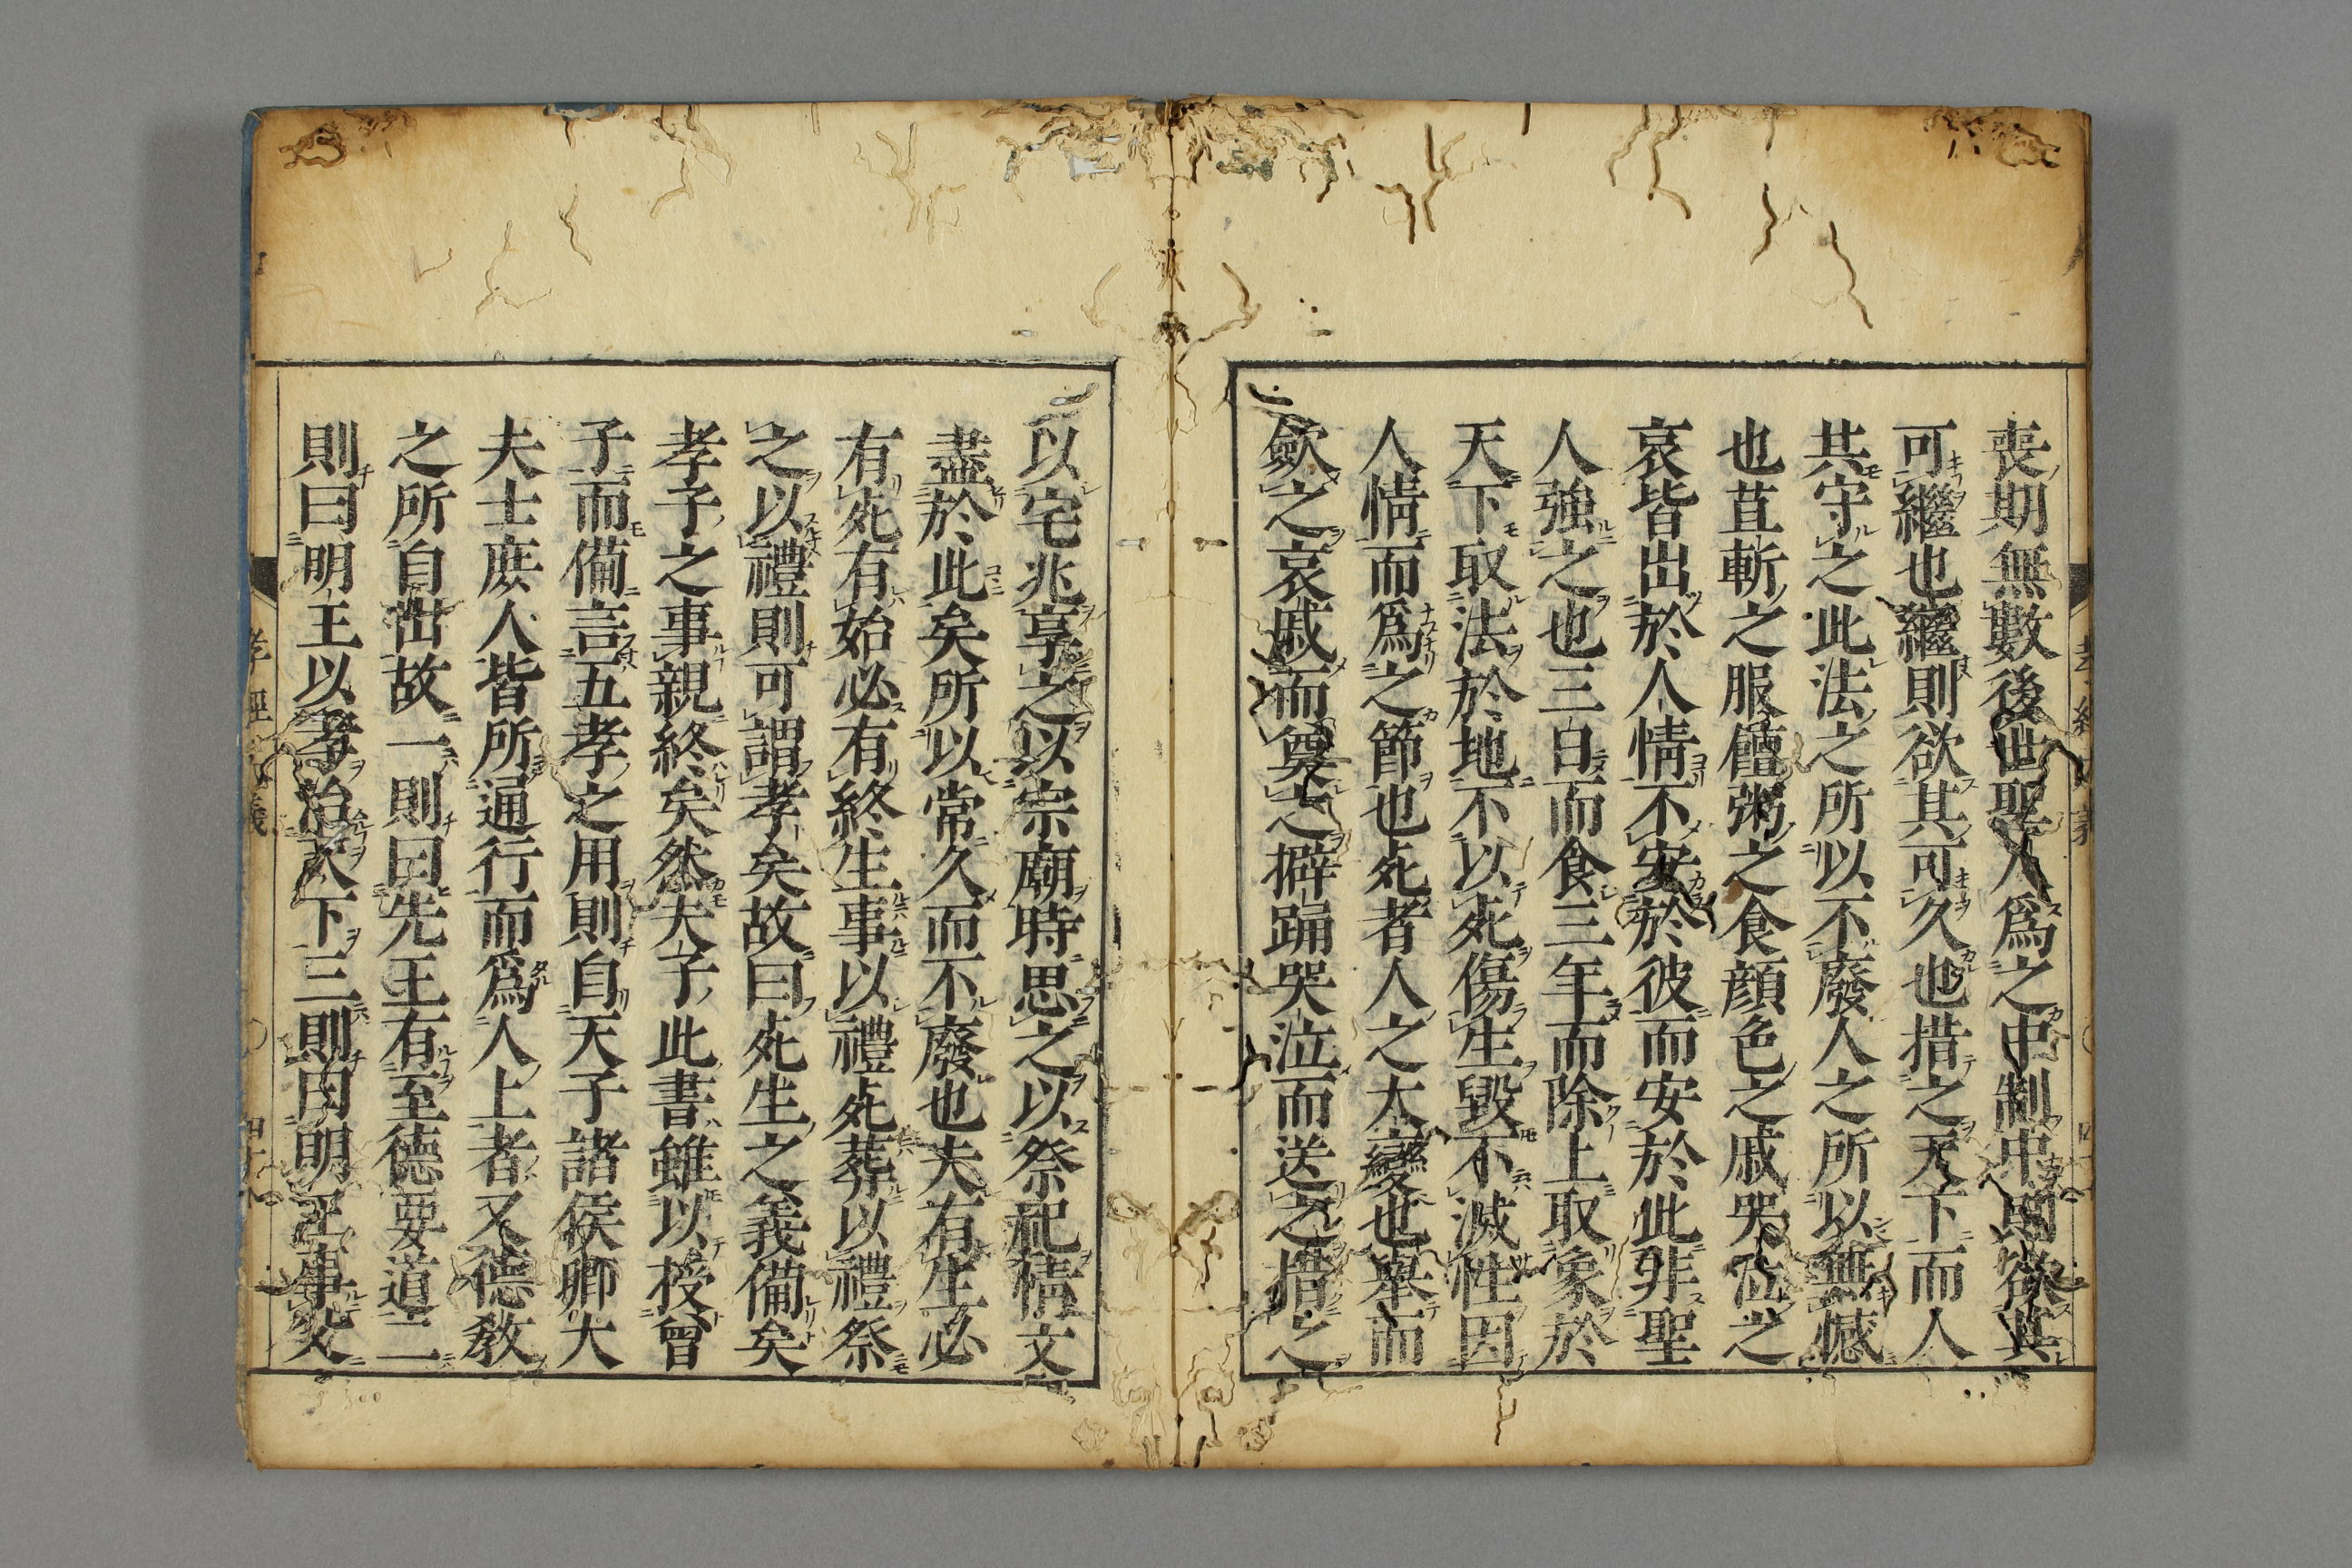 喪期無數後世聖人爲之中制中則欲其
可繼也繼則欲其可久也措之天下而人
共守之此法之所以不廢人之所以無憾
也苴斬之服饘粥之食顔色之戚哭泣之
哀皆出於人情不安於彼而安於此非聖
人強之也三日而食三年而除上取象於
天下取法於地不以死傷生毀不滅性因
人情而爲之節也死者人之大變也舉而
斂之哀戚而奠之擗踊哭泣而送之措之
以宅兆享之以宗廟時思之以祭祀情文
盡於此矣所以常久而不廢也夫有生必
有死有始必有終生事以禮死葬以禮祭
之以禮則可謂孝矣故曰死生之義備矣
孝子之事親終矣然夫子此書雖以授曾
子而備言五孝之用則自天子諸侯卿大
夫士庶人皆所通行而爲人上者又德敎
之所自出故一則曰先王有至德要道二
則曰明王以孝治天下三則曰明王事父